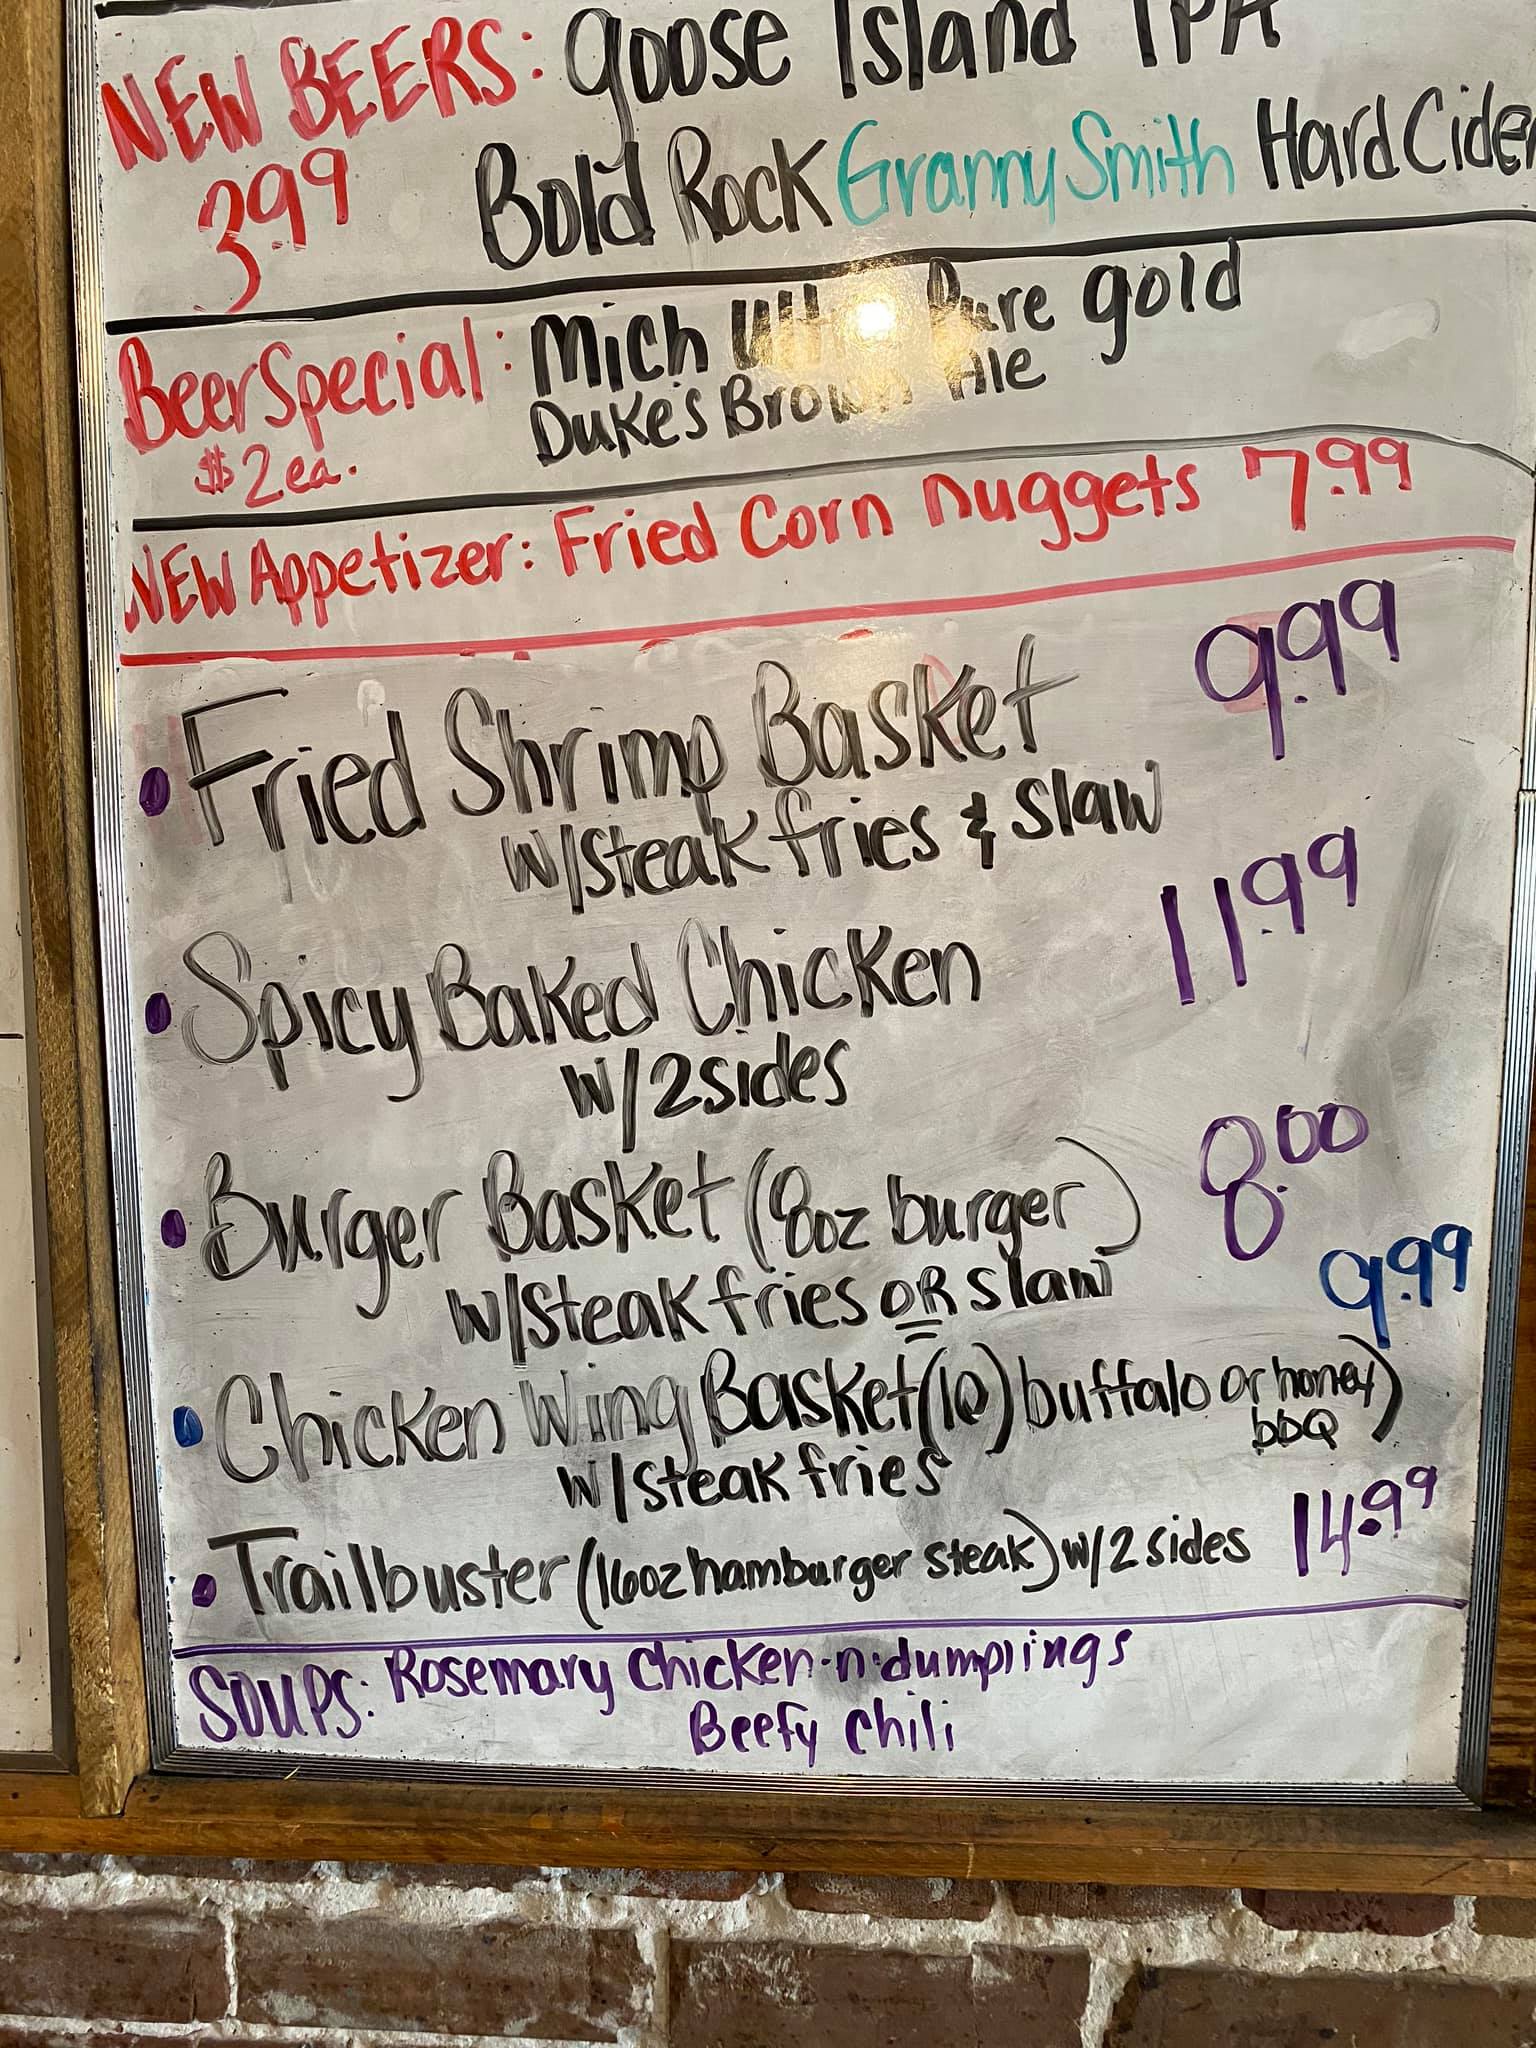 NEW BEERS: Goose Island IPA
3.99 Bold Rock Granny Smith Hard Cider
Beer Special: Mich Pure gold
$2 ea. Duke's Brown Ale
NEW Appetizer: Fried Corn Nuggets 7.99
• Fried Shrimp Basket 9.99
w/steak fries & slaw
• Spicy Baked Chicken 11.99
w/2 sides
• Burger Basket (8oz burger) 8.00
w/steak fries OR slaw
• Chicken Wing Basket (10) buffalo or honey bbQ) 9.99
w/steak fries
• Trailbuster (16oz hamburger steak) w/2 sides 14.99
SOUPS: Rosemary Chicken-n-dumplings
Beefy Chili